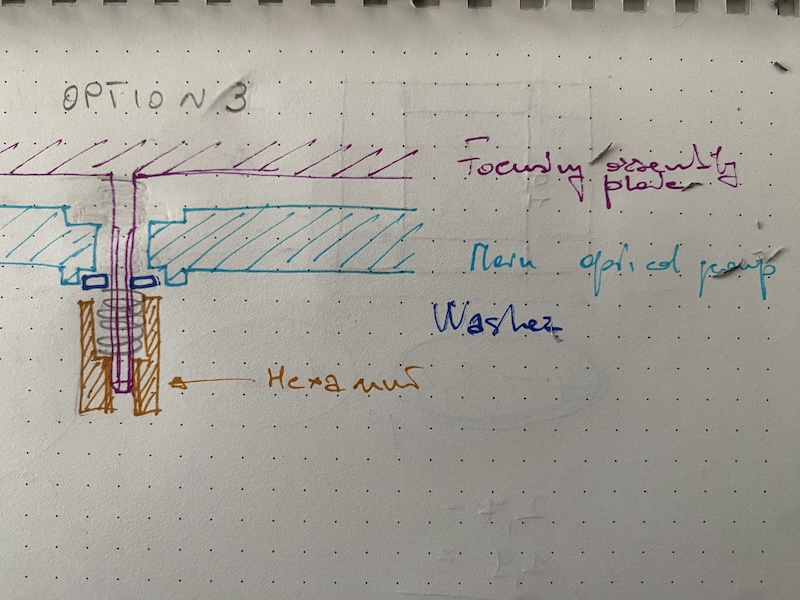 OPTION 3
Focusing assembly
plate
Main optical
Washer
Hexa nut